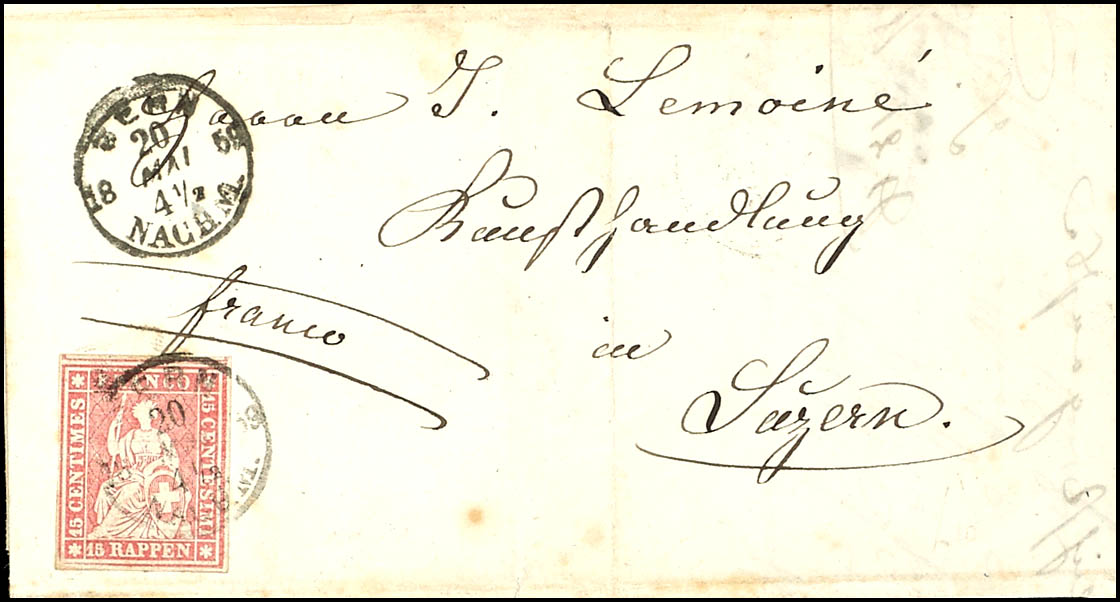 BERN
20
18 MAI 59
4 1/2
NACHM.
Herrn J. Lemoiné
Kunsthandlung
in
Luzern.
franco
FRANCO
15 CENTIMES
15 CENTESIMI
15 RAPPEN
BERN
20